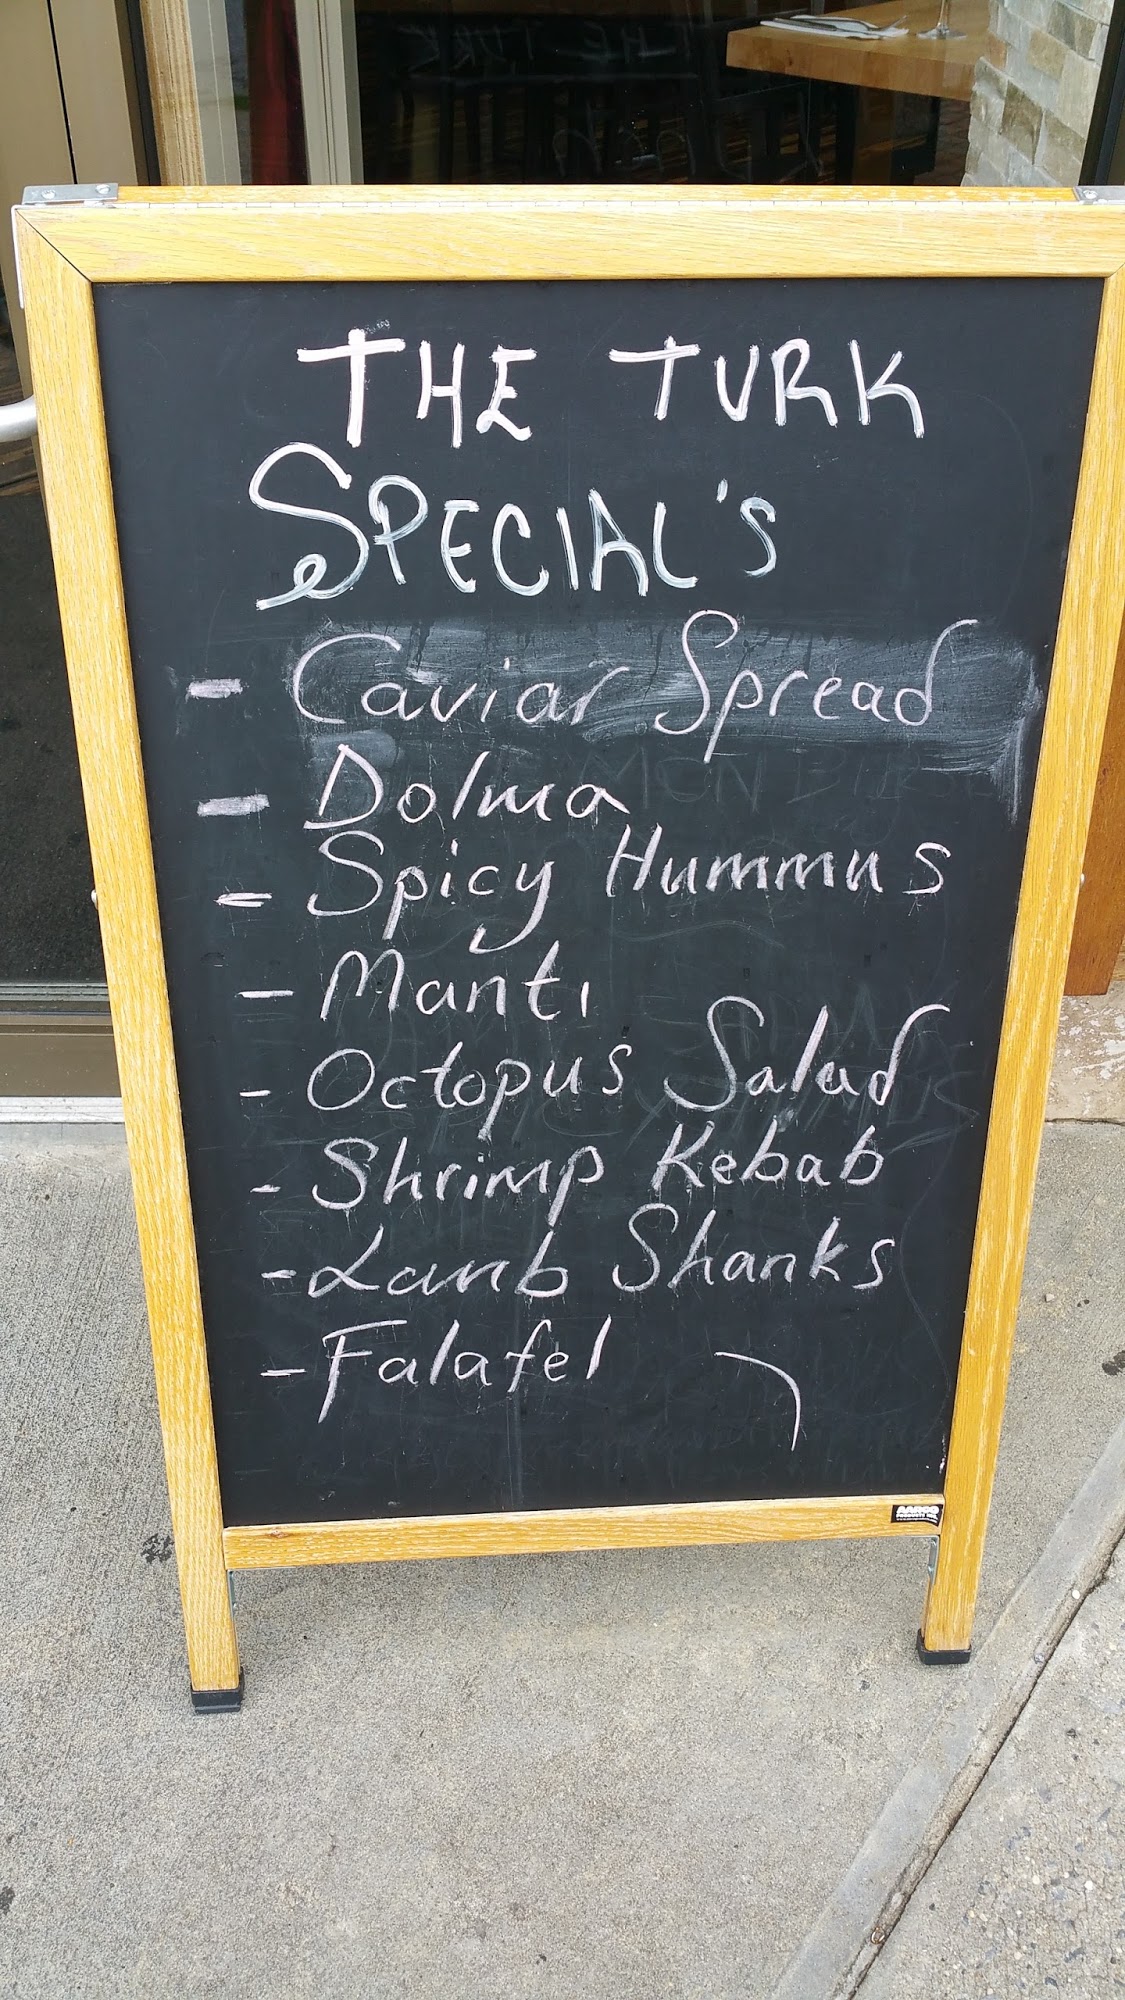 THE TURK
SPECIAL'S
- Caviar Spread
- Dolma
- Spicy Hummus
- Manti
- Octopus Salad
- Shrimp Kebab
- Lamb Shanks
- Falafel
AARCO
PRODUCTS INC.